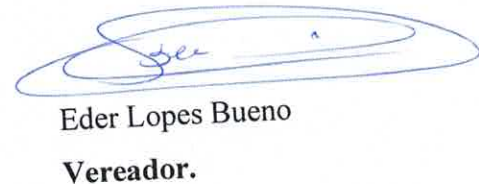 Eder Lopes Bueno
Vereador.